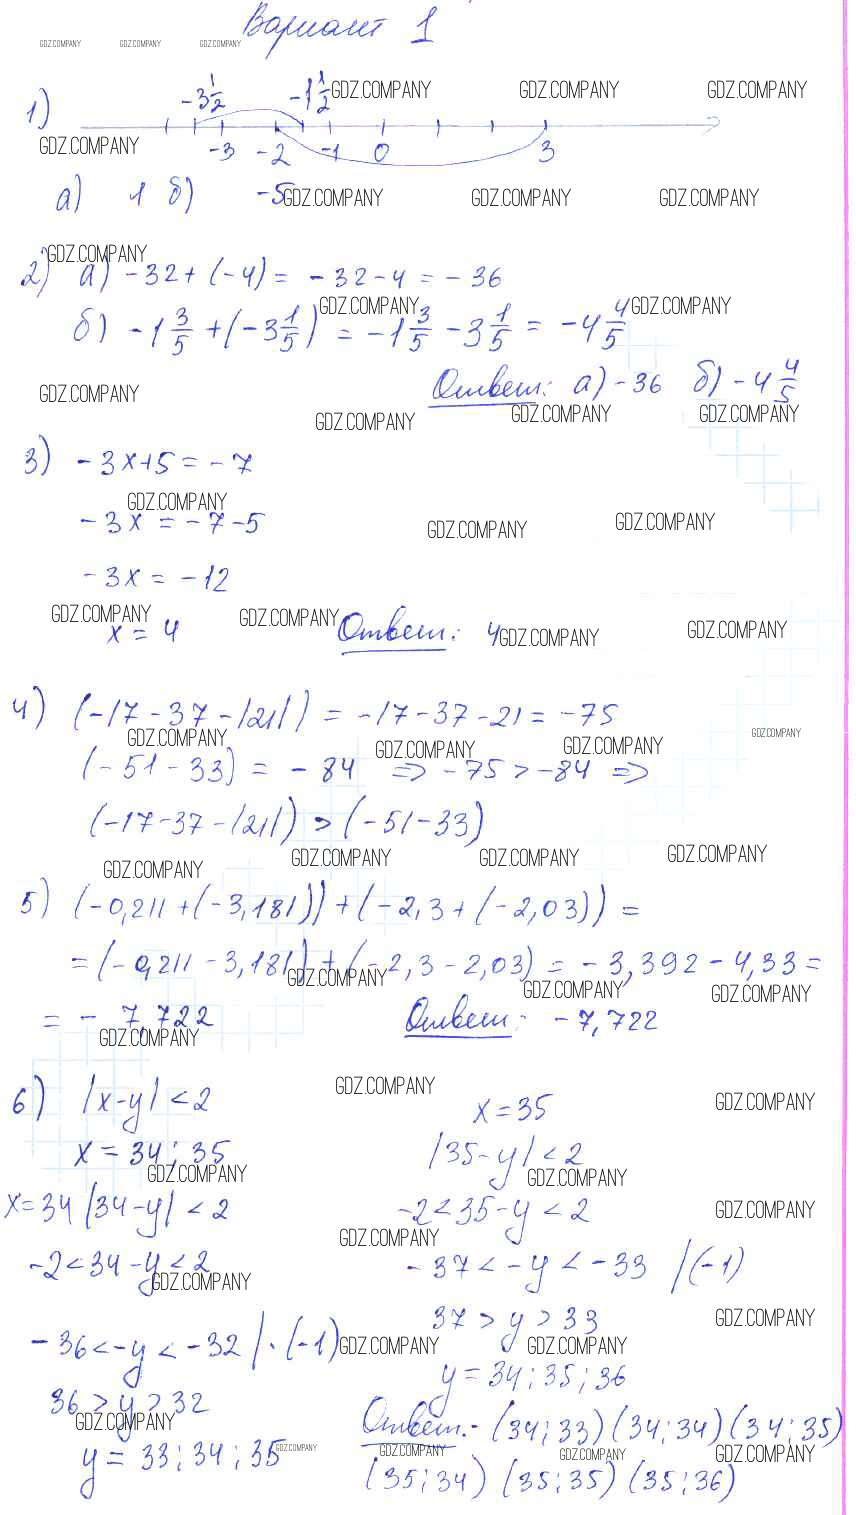 Вариант 1
GDZ.COMPANY GDZ.COMPANY GDZ.COMPANY
1) -3 1/2 -1 1/2 GDZ.COMPANY GDZ.COMPANY GDZ.COMPANY
GDZ.COMPANY -3 -2 -1 0 3
а) 1 б) -5 GDZ.COMPANY GDZ.COMPANY GDZ.COMPANY
GDZ.COMPANY
2) а) -32 + (-4) = -32 - 4 = -36
GDZ.COMPANY GDZ.COMPANY
б) -1 3/5 + (-3 1/5) = -1 3/5 - 3 1/5 = -4 4/5
Ответ: а) -36 б) -4 4/5
GDZ.COMPANY GDZ.COMPANY GDZ.COMPANY GDZ.COMPANY
3) -3x+5 = -7
GDZ.COMPANY
-3x = -7-5 GDZ.COMPANY GDZ.COMPANY
-3x = -12
GDZ.COMPANY GDZ.COMPANY
x = 4 Ответ: 4 GDZ.COMPANY GDZ.COMPANY
4) (-17-37-|21|) = -17-37-21 = -75
GDZ.COMPANY GDZ.COMPANY GDZ.COMPANY GDZ.COMPANY
(-51-33) = -84 => -75 > -84 =>
(-17-37-|21|) > (-51-33)
GDZ.COMPANY GDZ.COMPANY GDZ.COMPANY GDZ.COMPANY
5) (-0,211 + (-3,181)) + (-2,3 + (-2,03)) =
= (-0,211 - 3,181) + (-2,3 - 2,03) = -3,392 - 4,33 =
GDZ.COMPANY GDZ.COMPANY GDZ.COMPANY
= - 7,722 Ответ: -7,722
GDZ.COMPANY
6) |x-y| < 2 GDZ.COMPANY GDZ.COMPANY
x = 34; 35
GDZ.COMPANY
x=34 |34-y| < 2
-2 < 34-y < 2
GDZ.COMPANY
-36 < -y < -32 | · (-1)
36 > y > 32
GDZ.COMPANY
y = 33; 34; 35 GDZ.COMPANY
x = 35
|35-y| < 2
GDZ.COMPANY
-2 < 35-y < 2 GDZ.COMPANY
GDZ.COMPANY
-37 < -y < -33 |(-1)
37 > y > 33 GDZ.COMPANY
GDZ.COMPANY GDZ.COMPANY GDZ.COMPANY
y = 34; 35; 36
Ответ:- (34; 33) (34; 34) (34; 35)
GDZ.COMPANY GDZ.COMPANY GDZ.COMPANY
(35; 34) (35; 35) (35; 36)